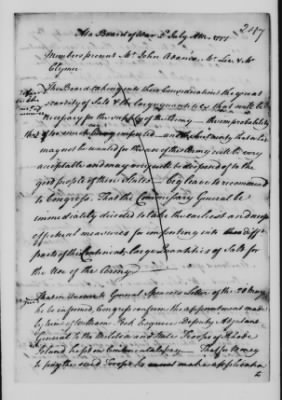 2017
At a Board of War 2d July A.D. 1777
Members present Mr John Adams, Mr Lee & Mr
Clymer
The Board taking into their Consideration the great
scarcity of Salt & the large quantity that will be
necessary for the supply of the Army
imported
may not be wanted for the use of the Army will be very
acceptable and may very well be disposed of to the
good people of these States beg leave to recommend
to Congress. That the Commissary General be
immediately directed to take the earliest and most
effectual measures for importing into
parts of the Continent, large Quantities of Salt for
the Use of the Army
That in Answer to General Spencers Letter of the 20 May
he be informed, Congress confirm the appointment made
by him of William Esquire Deputy Adjutant
General to the Militia and State Troops of Rhode
Island he put in Continental pay. That for money
to pay the said Troops he must make application
to